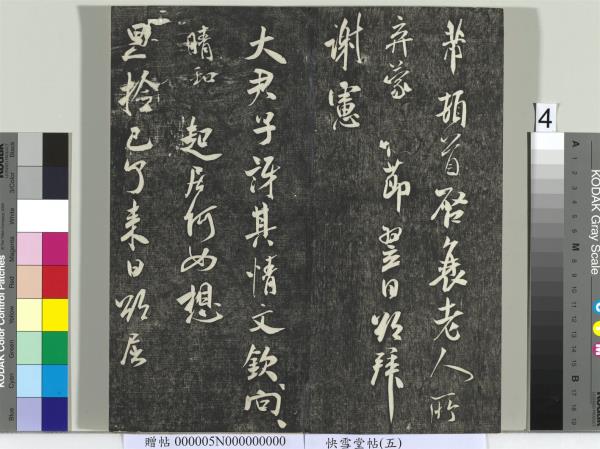 芾頓首啓衰老人所
棄蒙 節翌日欲拜
謝憲
大君子訝其情文欽向
晴和 起居何如想
已了来日欲屈
4
KODAK Color Control Patches
KODAK Gray Scale
Blue
Cyan
Green
Yellow
Red
Magenta
White
3/Color
Black
A 1 2 3 4 5 6 M 8 9 10 11 12 13 14 15 B 17 18 19
C
Y
M
贈帖 000005N000000000 快雪堂帖(五)